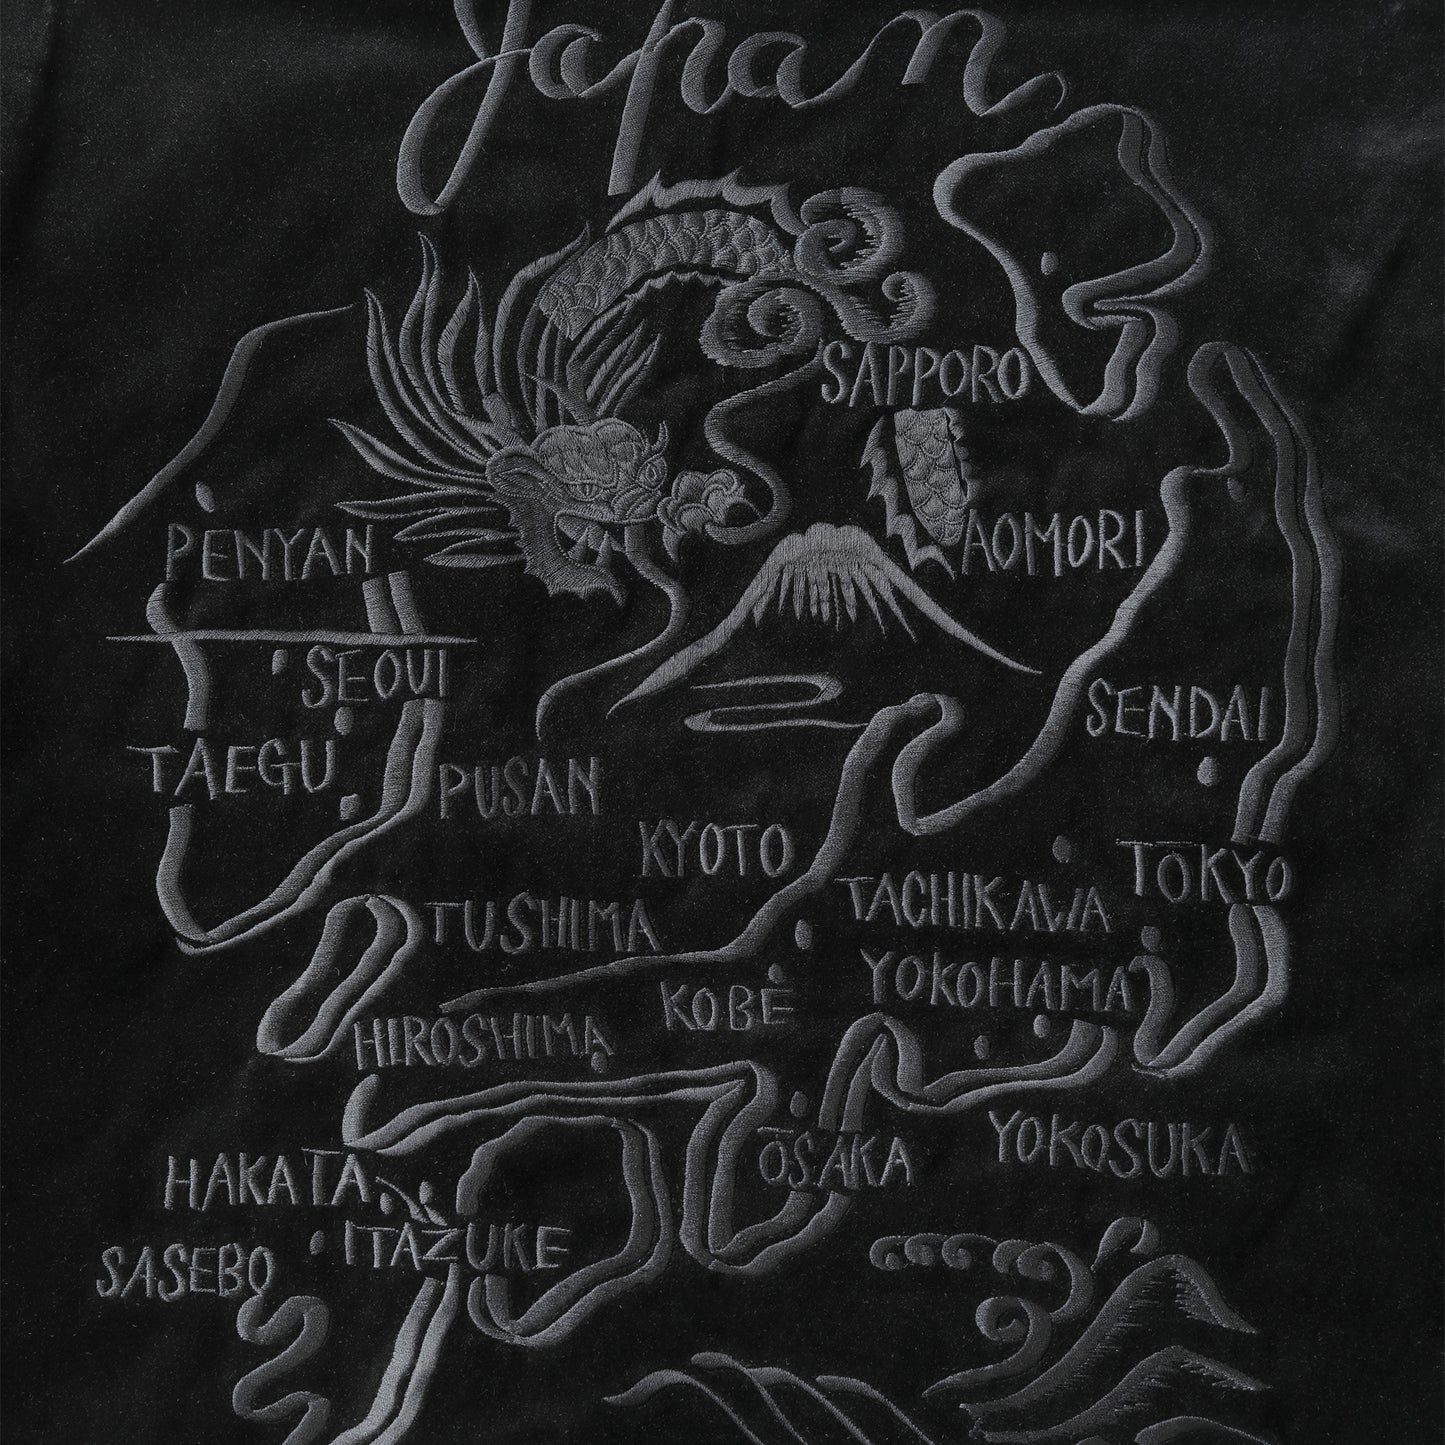 Japan
SAPPORO
PENYAN
AOMORI
SEOUl
SENDAI
TAEGU
PUSAN
KYOTO
TOKYO
TUSHIMA
TACHIKAWA
YOKOHAMA
KOBE
HIROSHIMA
OSAKA
YOKOSUKA
HAKATA
ITAZUKE
SASEBO